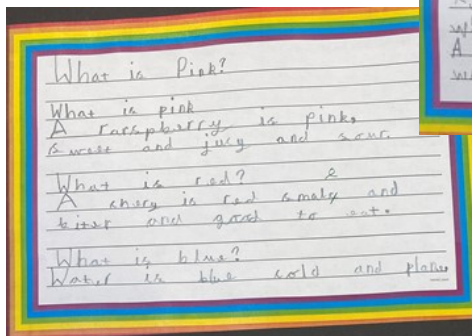 What is Pink?
What is pink
A rarspberry is pink,
sweet and jucy and sour.
What is red?
A chery is red smaly and
biter and good to eat.
What is blue?
Water is blue cold and
A